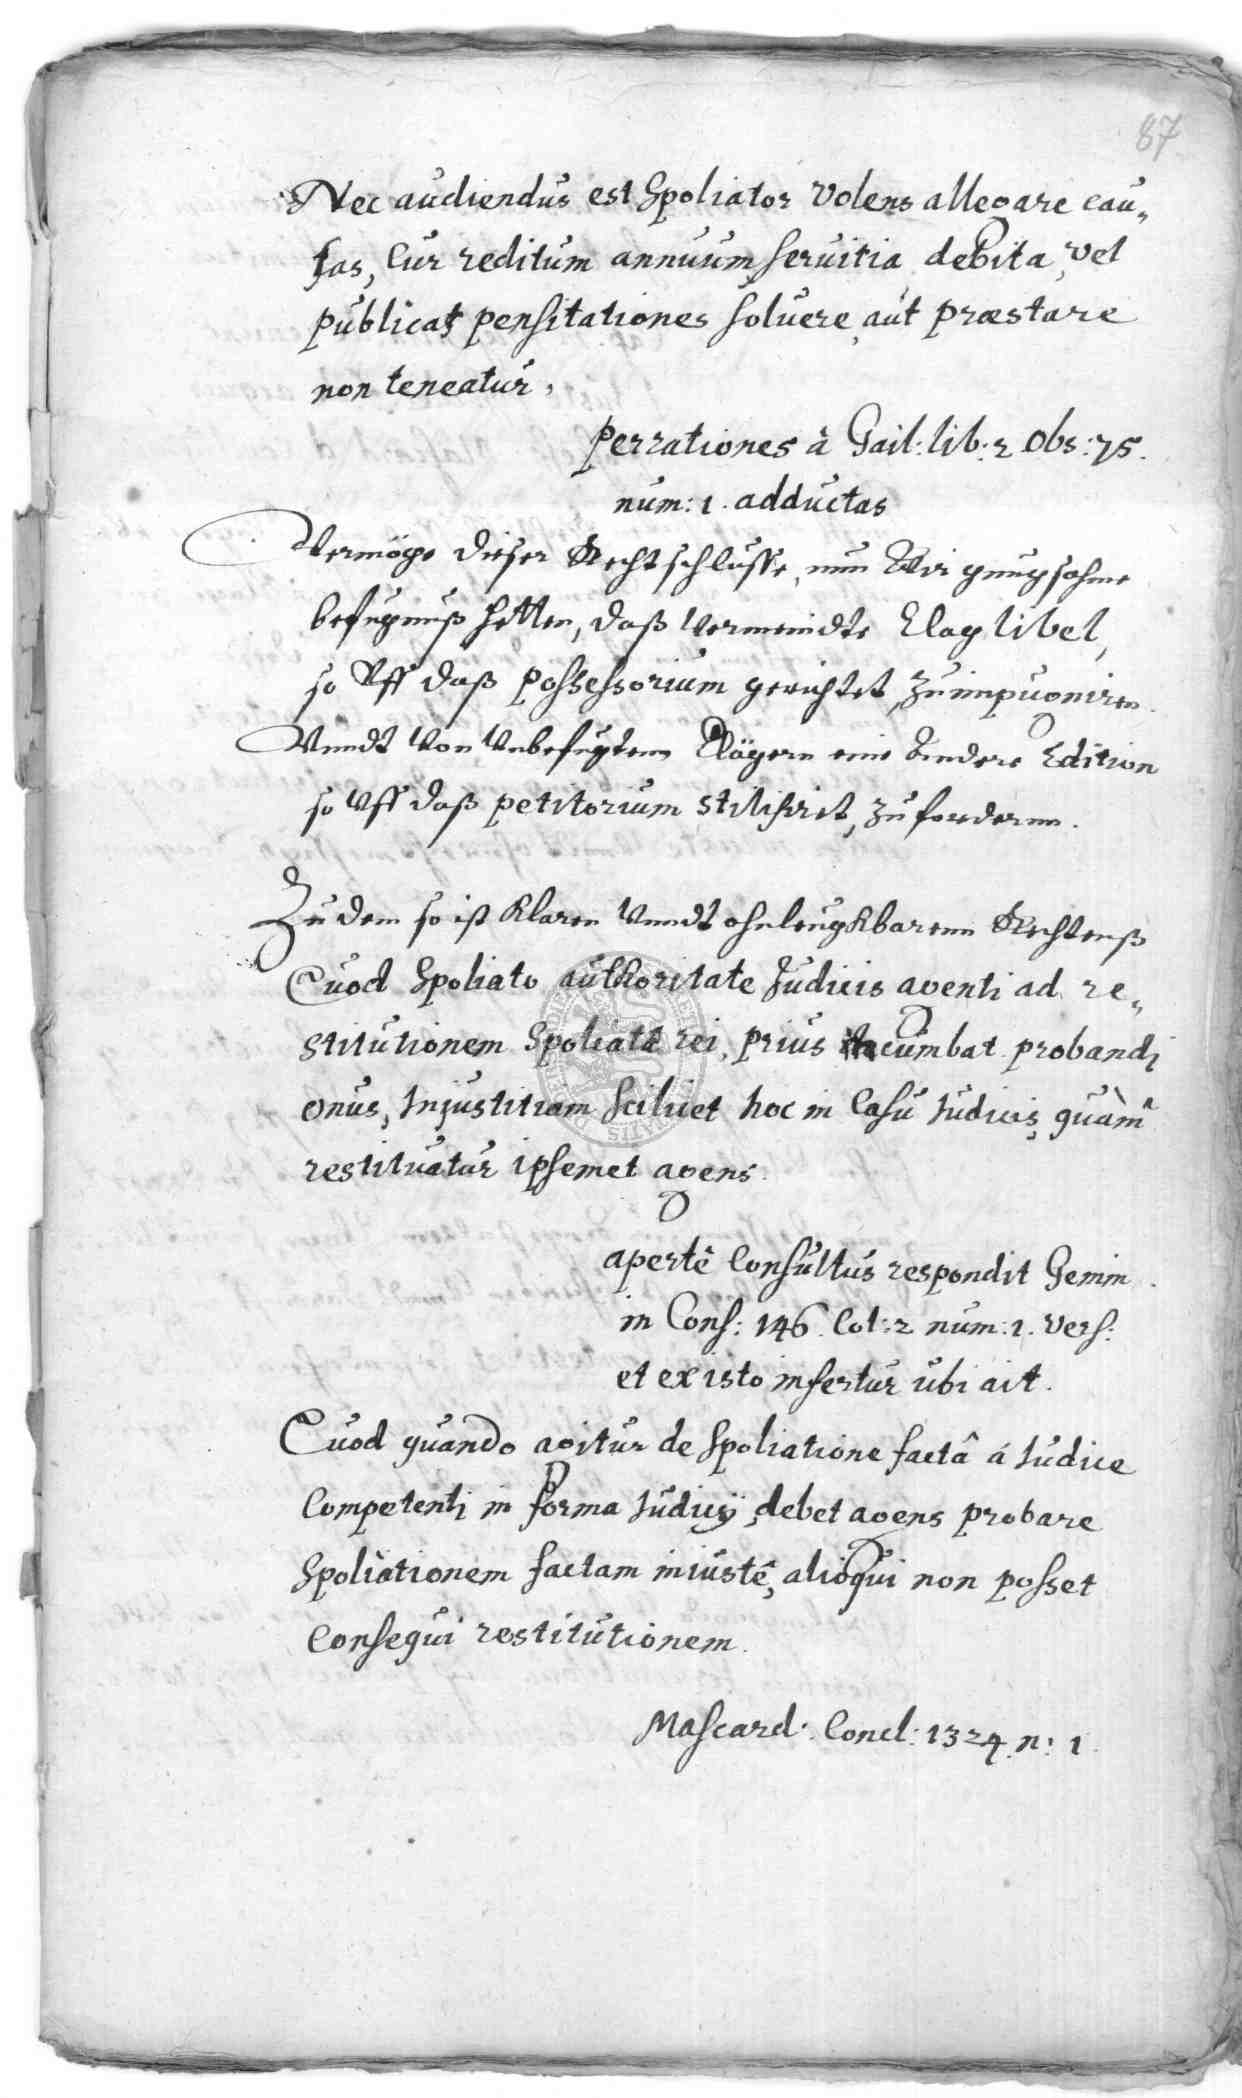 87
Nec audiendus est Spoliator volens allegare cau„
sas, Cur reditum annuum, seruitia debita, vel
publicas pensitationes soluere, aut præstare
non teneatur,
per rationes à Gail: lib: 2 Obs: 75.
num: 1. adductas
Vermöge dieser Rechtschlüsse, nun Wir gnugsahme
befugnuß hetten, daß Vermeindte Clag libel,
so Vff daß possessorium gerichtet, zu impugniren
Vnndt Von Vnbefugtem Clägern eine Andere Edition
so Vff daß petitorium stilisirt, zu fordernn.
Zu dem so ist Klaren Vnndt ohnleugkbarenn Rechtenß
Quod Spoliato authoritate Judicis agenti ad re„
stitutionem Spoliatæ rei, prius incumbat probandi
onus, Injustitiam scilicet hoc in Casu Judicis, quàm
restituatur ipsemet agens.
apertè Consultus respondit Gemin.
in Cons: 146. Col: 2 num: 1. vers:
et ex isto infertur ubi ait.
Quod quando agitur de spoliatione factâ á Judice
Competenti in forma Judicij, debet agens probare
Spoliationem factam iniustê, alioqui non posset
Consequi restitutionem.
Mascard: Concl: 1324. n: 1.